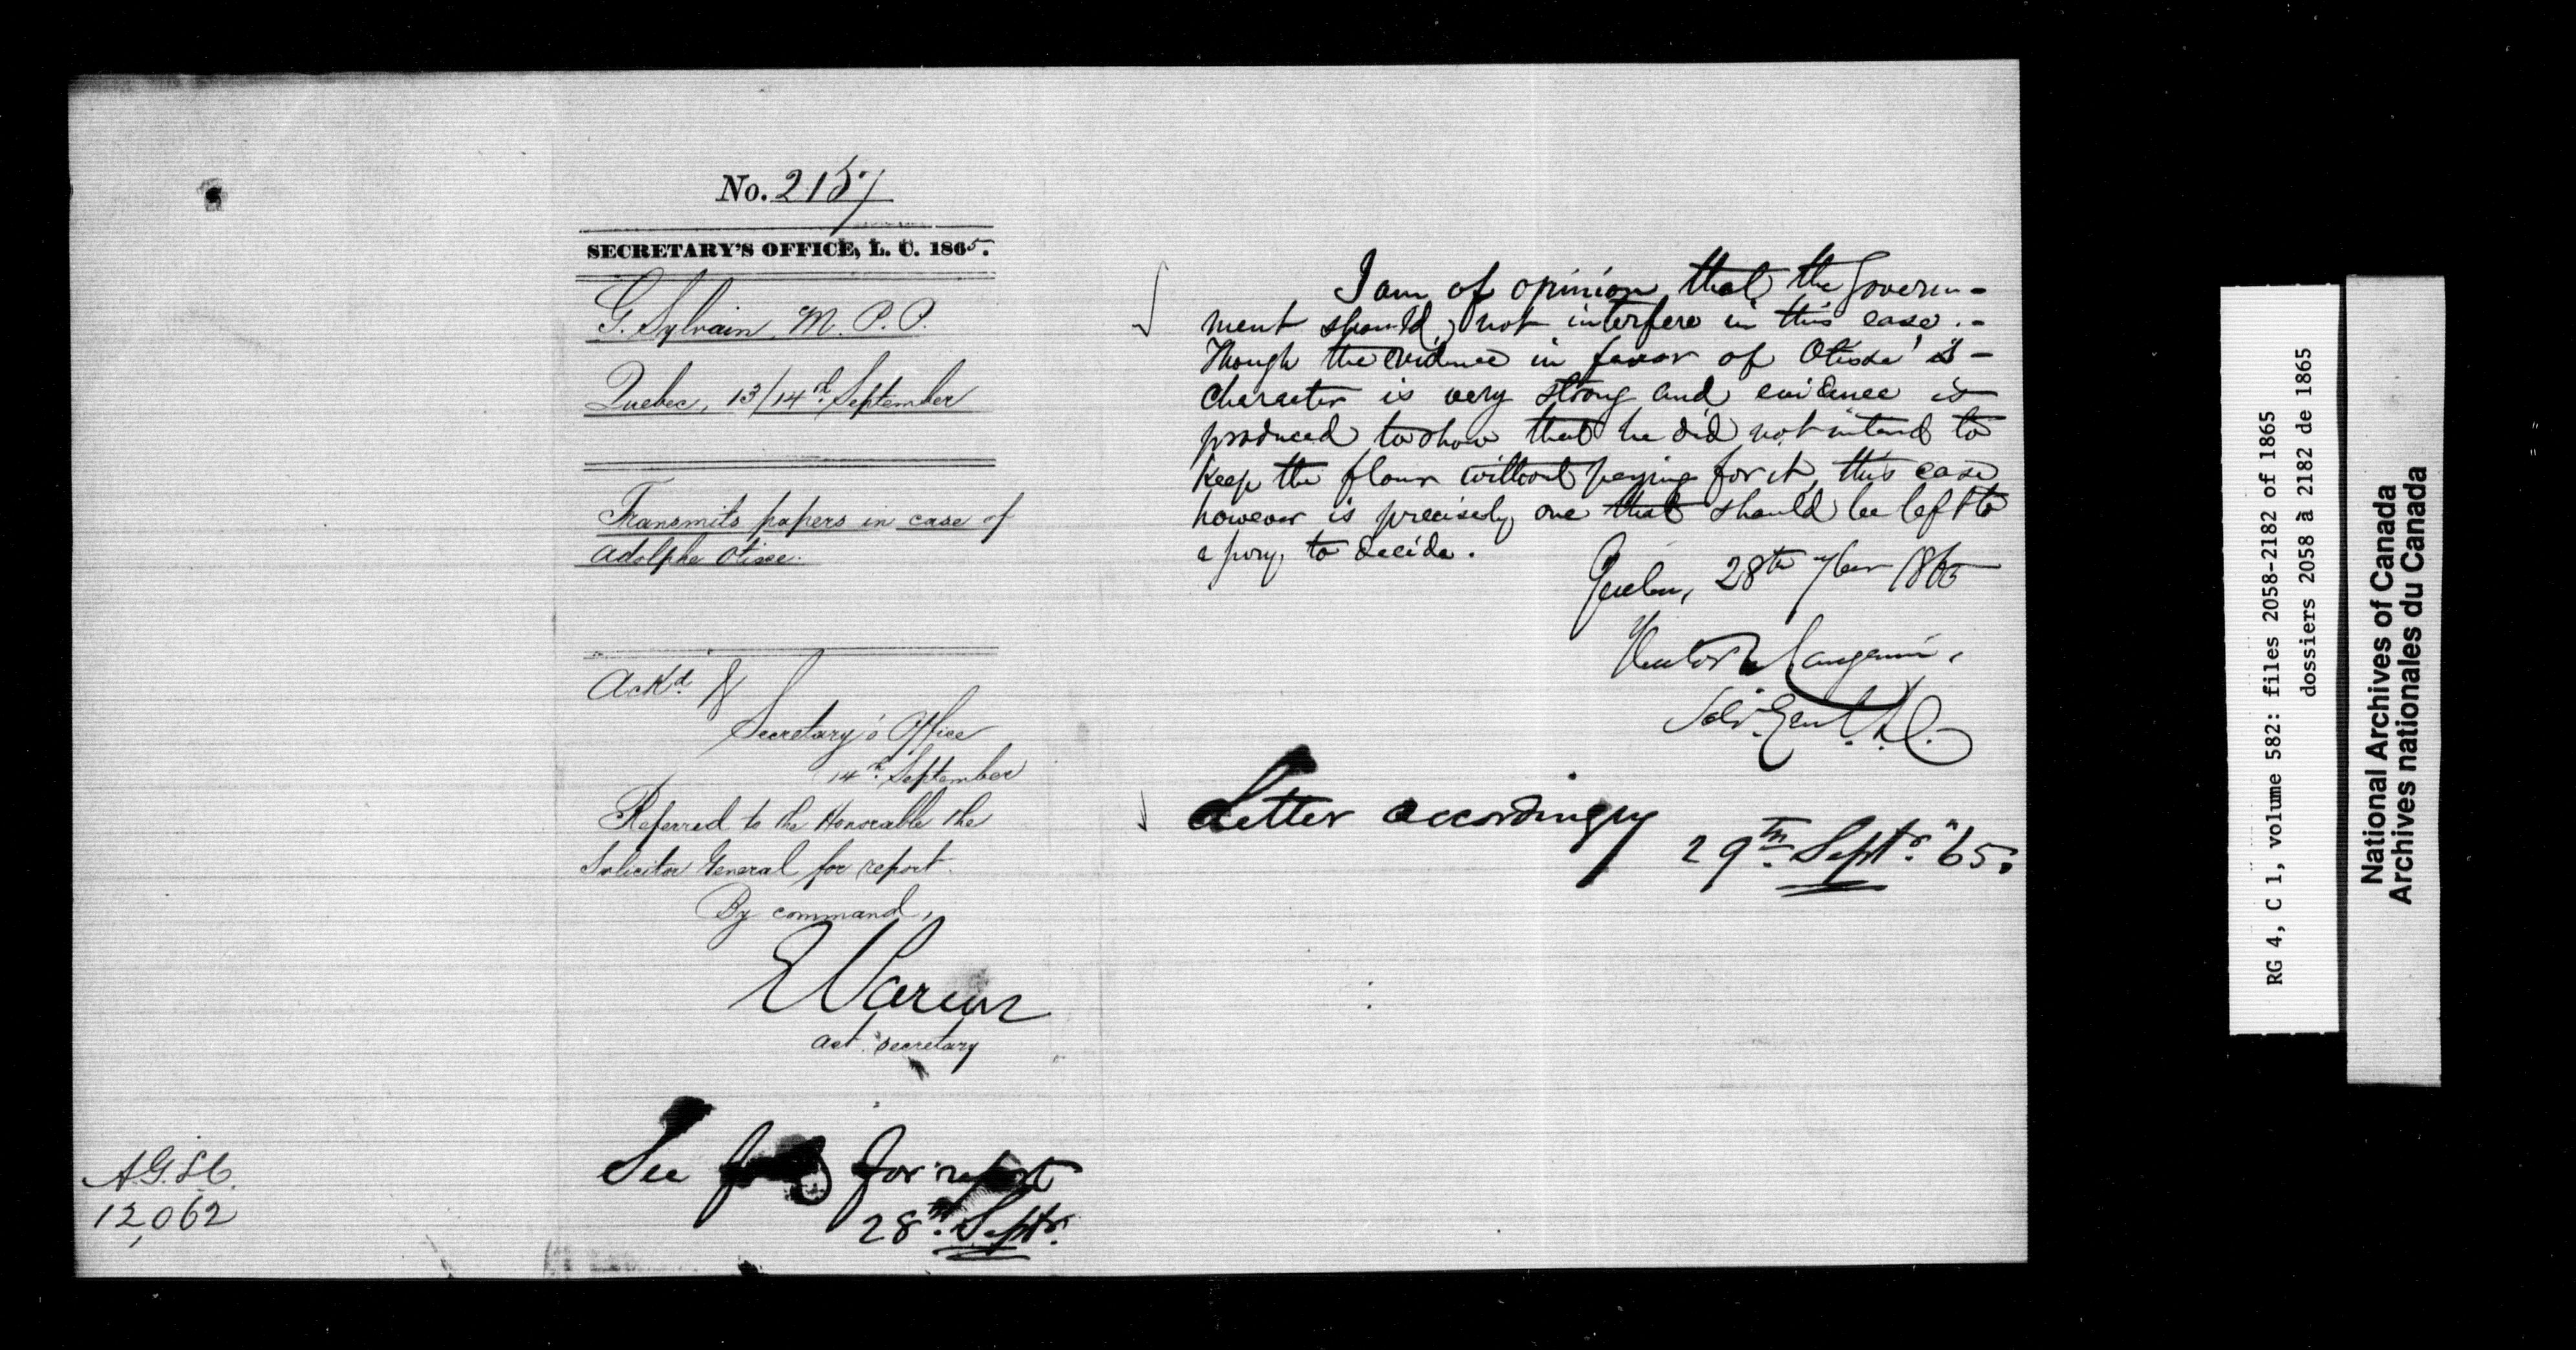 No. 2157
SECRETARY'S OFFICE, L. C. 1865.
G. Sylvain, M. P. P.
Quebec, 13/14th September
Transmits papers in case of
Adolphe Otisse.
Ackd.
Secretary's Office
14th September
Referred to the Honorable the
Solicitor General for report.
By command,
E Parent
Act. Secretary
See for report
28th Septr.
A.G.L.C.
12,062
I am of opinion that the Govern-
ment should not interfere in this case.-
Though the evidence in favor of Otisse's-
character is very strong and evidence is
produced to show that he did not intend to
keep the flour without paying for it, this case
however is precisely one that should be left to
a jury to decide.
Quebec, 28th 7ber 1865
Hector L. Langevin,
Solr. Genl. L.C.
Letter accordingly
29th Septr. '65.
RG 4, C 1, volume 582: files 2058-2182 of 1865
dossiers 2058 à 2182 de 1865
National Archives of Canada
Archives nationales du Canada